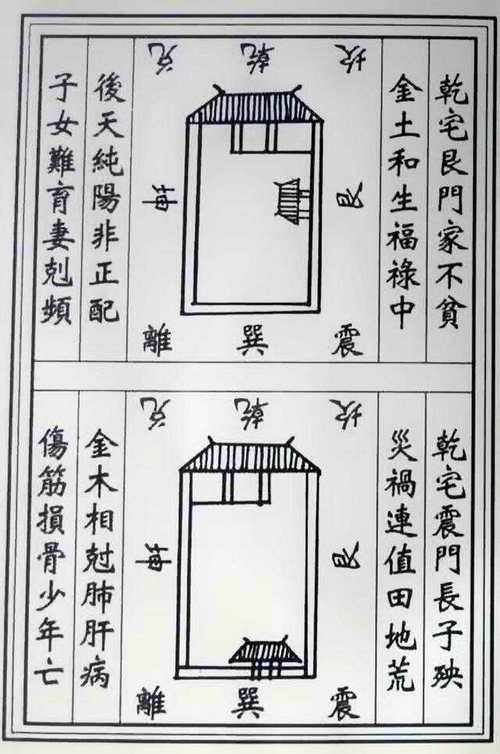 乾宅艮門家不貧
金土和生福祿中
兌 乾 坎
坤 艮
離 巽 震
後天純陽非正配
子女難育妻剋頻
乾宅震門長子殃
災禍連值田地荒
兌 乾 坎
坤 艮
離 巽 震
金木相尅肺肝病
傷筋損骨少年亡